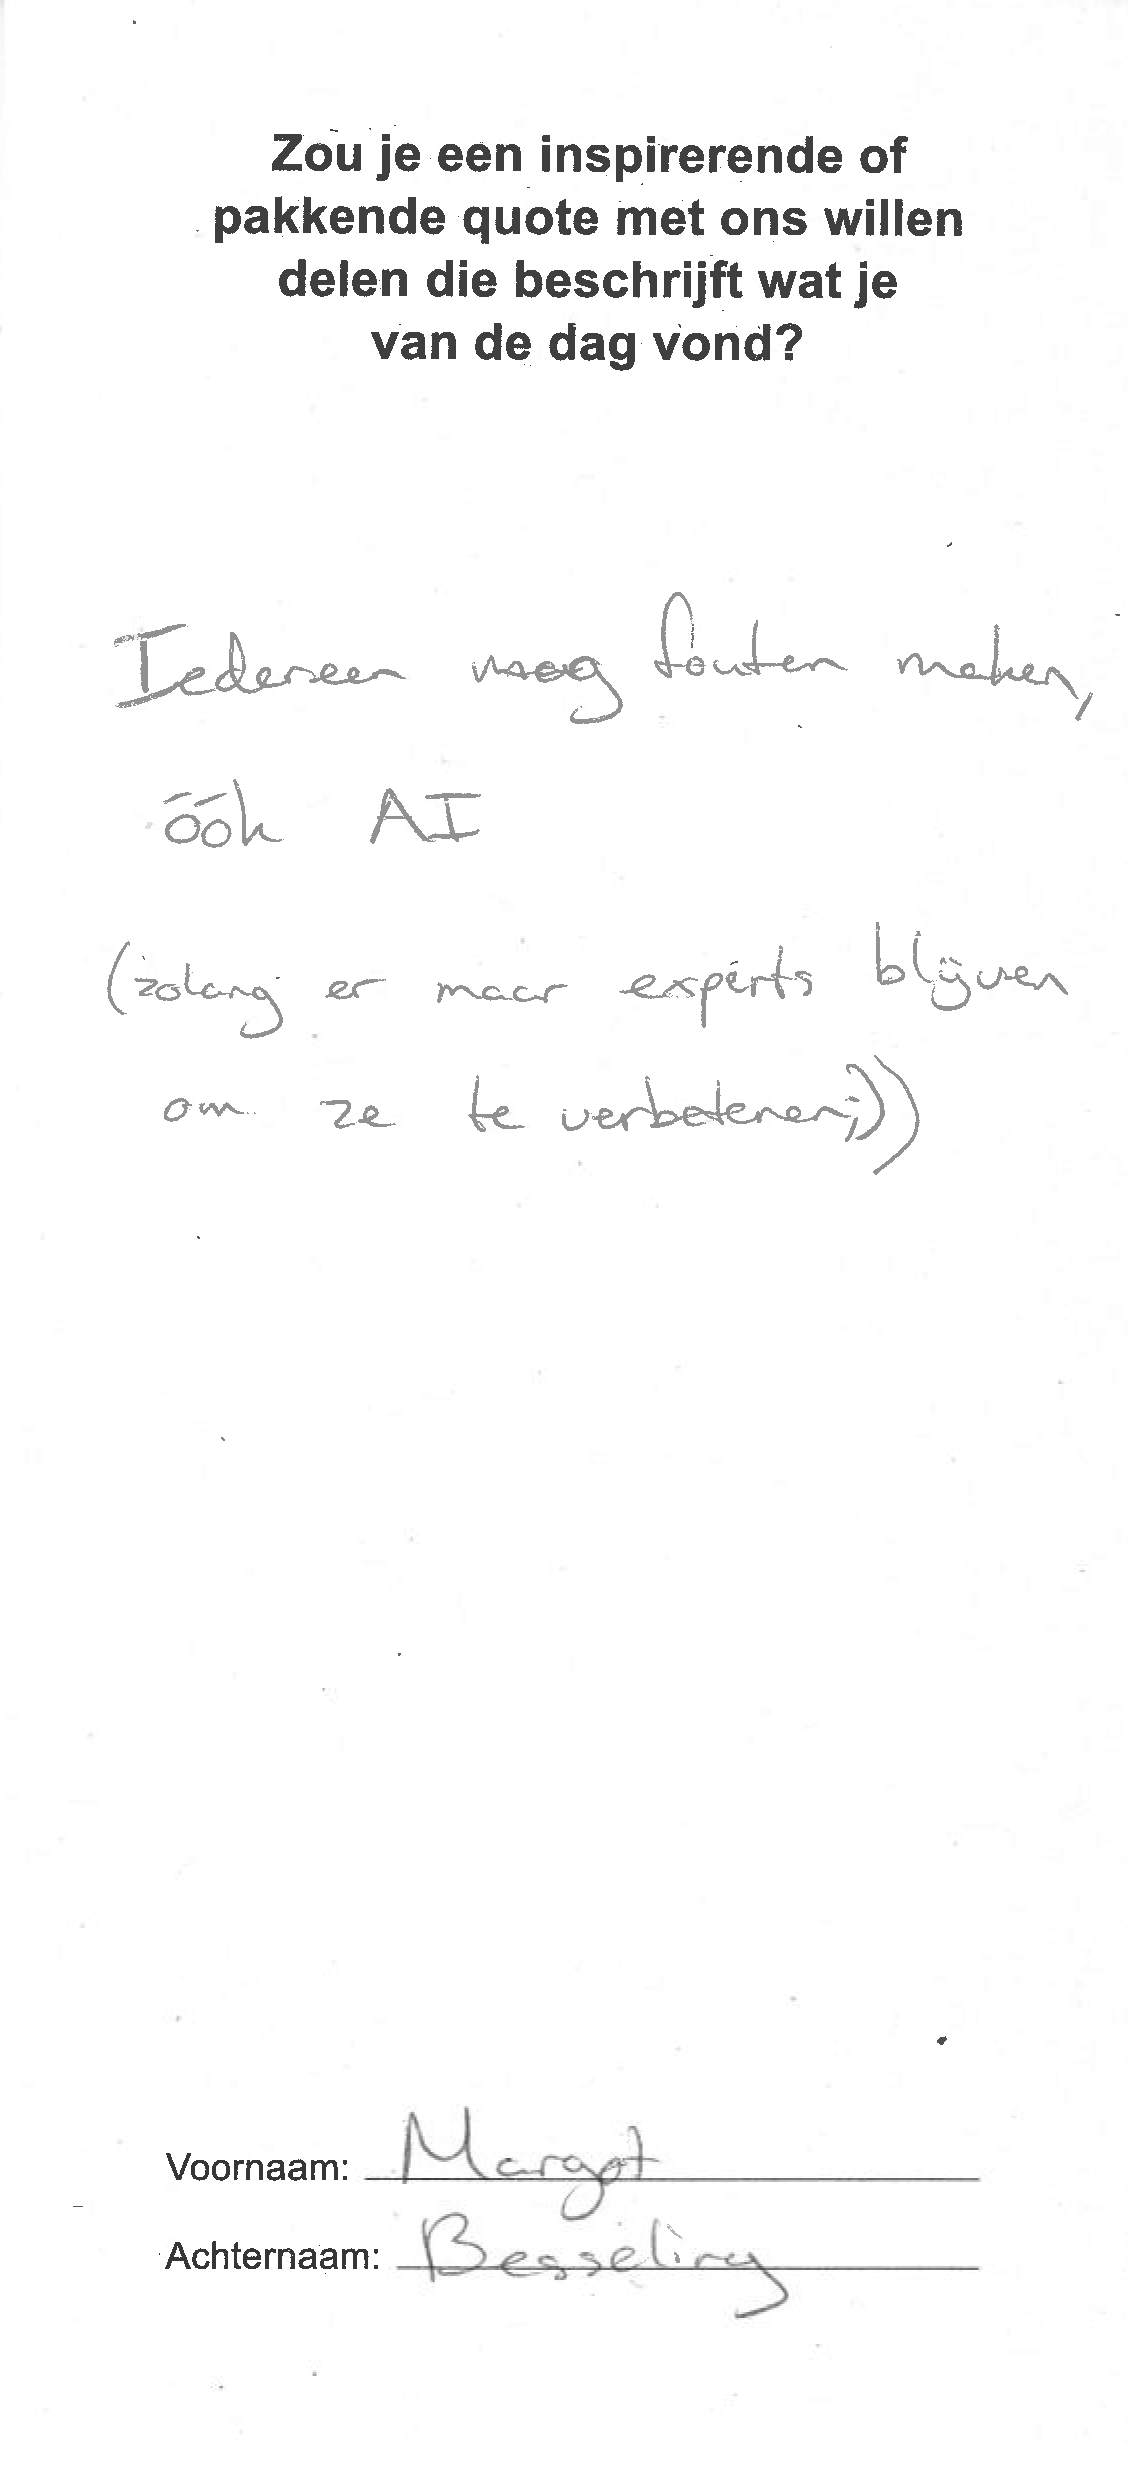 Zou je een inspirerende of
pakkende quote met ons willen
delen die beschrijft wat je
van de dag vond?
Iedereen mag fouten maken,
óók AI
(zolang er maar experts blijven
om ze te verbeteren;))
Voornaam: Margot
Achternaam: Besseling